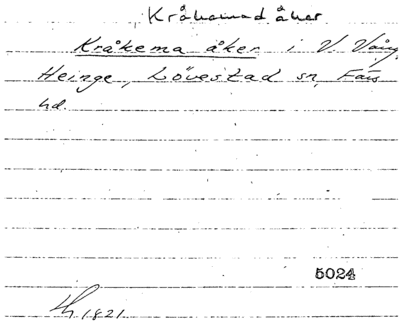 Kråkemad åker
Kråkema åker i V. Vång,
Heinge, Lövestad sn, Färs
hd.
5024
1821